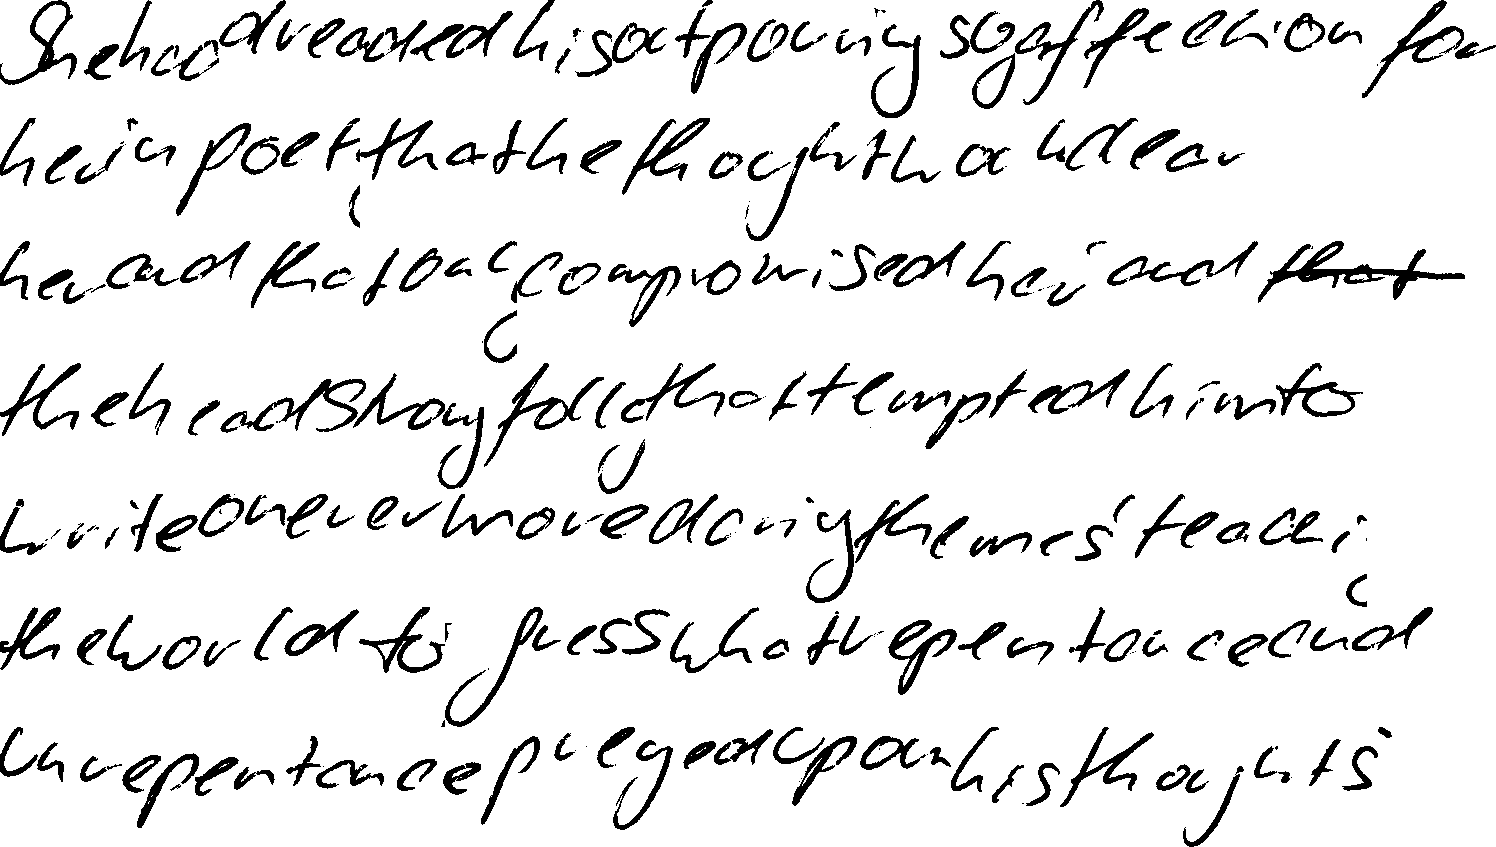 She had dreaded his outpourings of affection for
her in poetry that he thought clear
her and that only compromised her and that
the headstrong folly that tempted him to
write on ever more daring themes teaching
the world to guess what repentance and
unrepentance preyed upon his thoughts